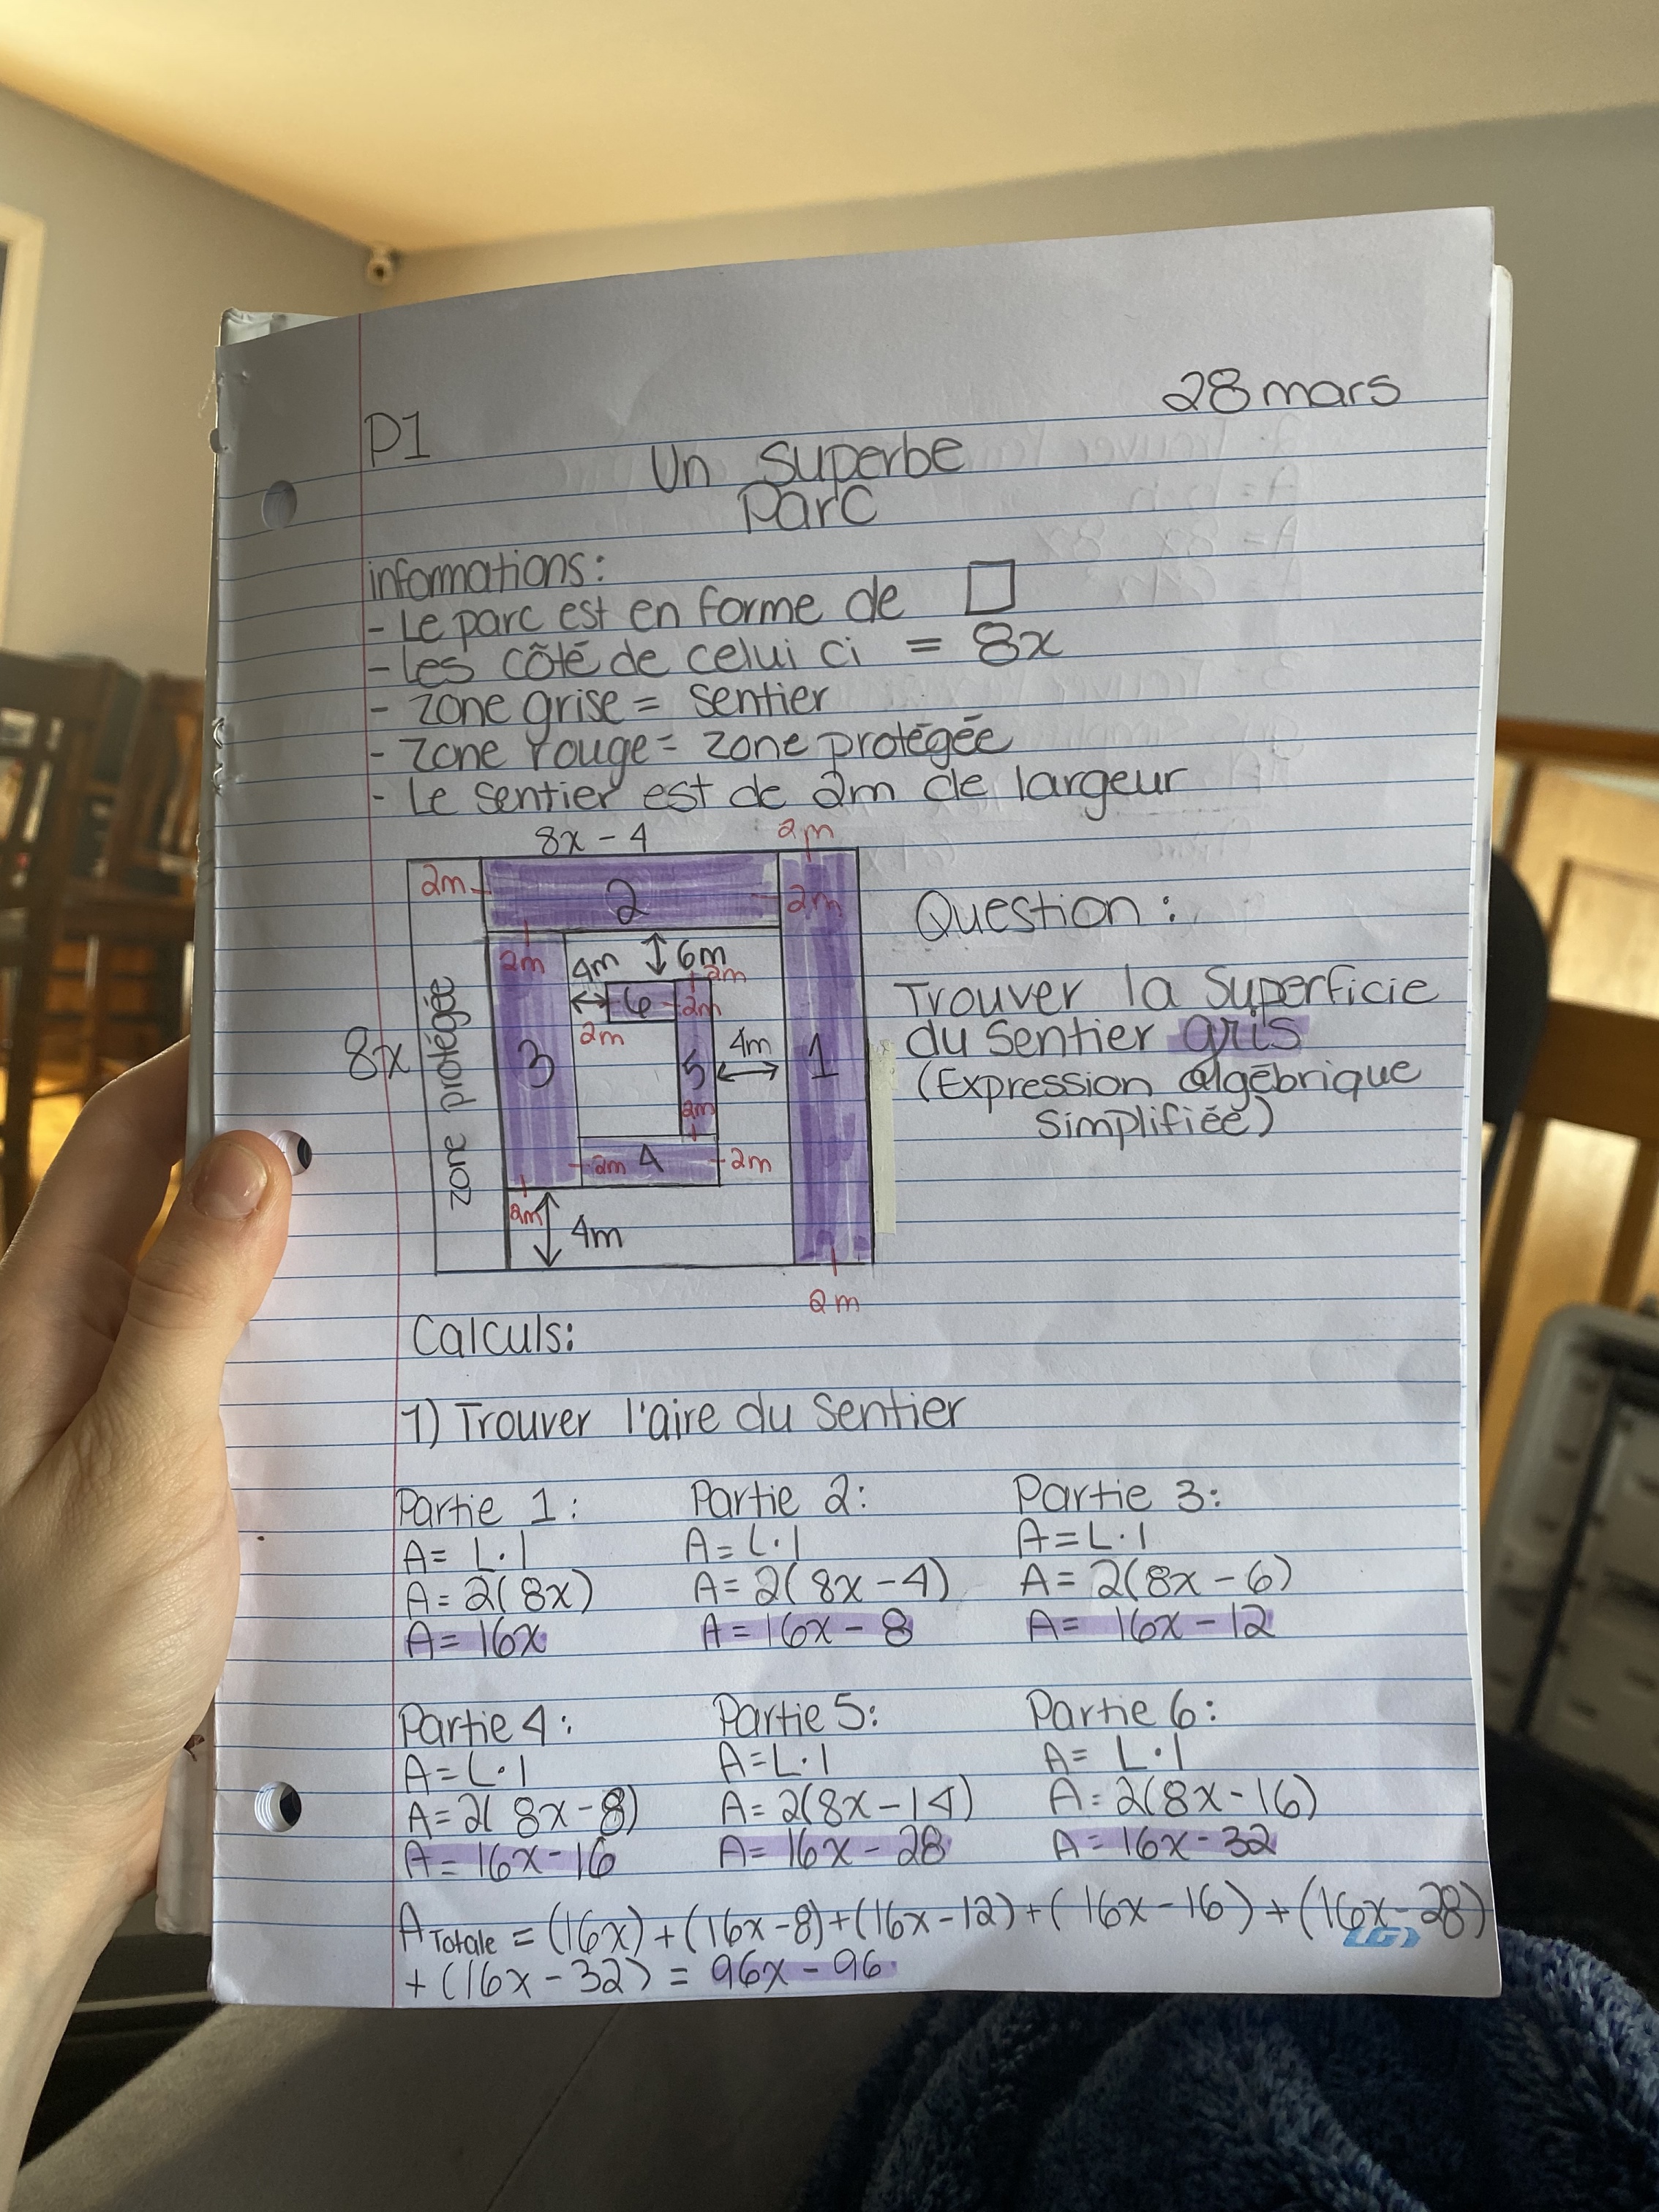 28 mars
P1
Un superbe
Parc
informations:
- Le parc est en forme de □
- Les côté de celui ci = 8x
- zone grise = sentier
- zone rouge = zone protégée
- Le sentier est de 2m de largeur
8x - 4
2m
2m
2
2m
2m
4m
6m
2m
6
2m
2m
8x
zone protégée
3
5
4m
1
2m
2m
4
2m
2m
4m
2m
Question:
Trouver la superficie
du sentier gris
(Expression algébrique
simplifiée)
Calculs:
1) Trouver l'aire du sentier
Partie 1: Partie 2: Partie 3:
A = L·l A = L·l A = L·l
A = 2(8x) A = 2(8x - 4) A = 2(8x - 6)
A = 16x A = 16x - 8 A = 16x - 12
Partie 4: Partie 5: Partie 6:
A = L·l A = L·l A = L·l
A = 2(8x - 8) A = 2(8x - 14) A = 2(8x - 16)
A = 16x - 16 A = 16x - 28 A = 16x - 32
A Totale = (16x) + (16x - 8) + (16x - 12) + (16x - 16) + (16x - 28)
+ (16x - 32) = 96x - 96